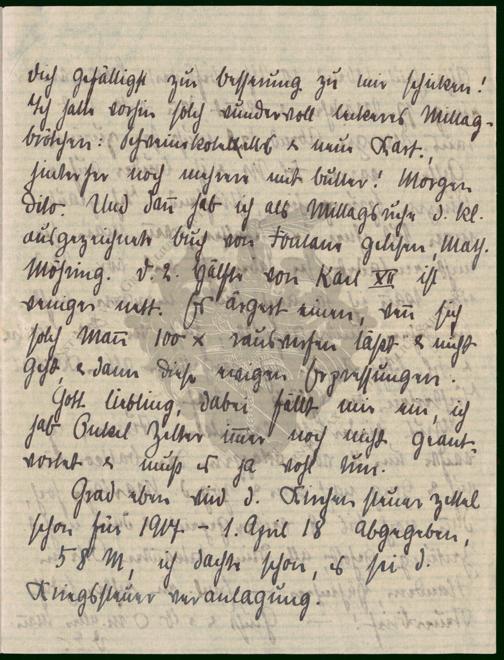 dich gefälligst zur Besserung zu mir schicken!
Ich hatte vorhin solch wundervoll leckeres Mittag-
brötchen: Schweinskotelells & neue Kart.,
hinterher noch mehrere mit Butter! Morgen
dito. Und dann hab ich als Mittagsruhe d. kl.
ausgezeichnete Buch von Fontane gelesen, Math.
Möhring. d. 2. Hälfte von Karl XII ist
weniger nett. Es ärgert einen, wenn sich
solch Mann 100 x rauswerfen läßt & nicht
geht, & dann diese ewigen Erpressungen.
Gott Liebling, dabei fällt mir ein, ich
hab Onkel Zelter immer noch nicht geant-
wortet & muß es ja wohl tun.
Grad eben wird d. Kirchensteuerzettel
schon für 1917 - 1. April 18 abgegeben,
58 M, ich dachte schon, es sei d.
Kriegssteuerveranlagung.